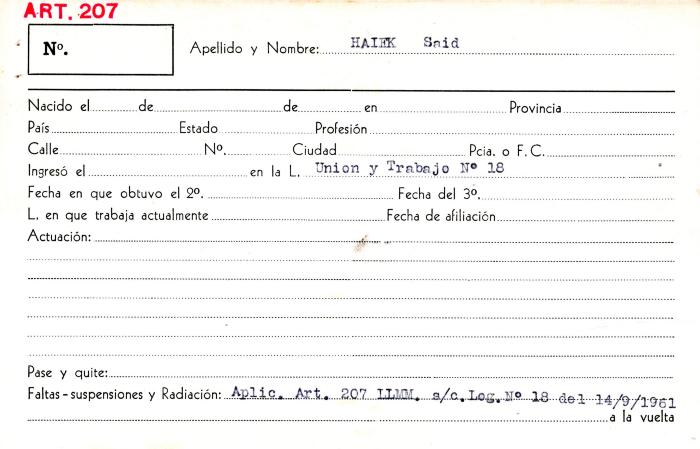 ART. 207
Nº.
Apellido y Nombre: HAIEK Said
Nacido el de de en Provincia
País Estado Profesión
Calle Nº. Ciudad Pcia. o F. C.
Ingresó el en la L. Union y Trabajo Nº 18
Fecha en que obtuvo el 2º. Fecha del 3º.
L. en que trabaja actualmente Fecha de afiliación
Actuación:
Pase y quite:
Faltas - suspensiones y Radiación: Aplic. Art. 207 LLMM. s/c.Log.Nº 18 del 14/9/1961
a la vuelta